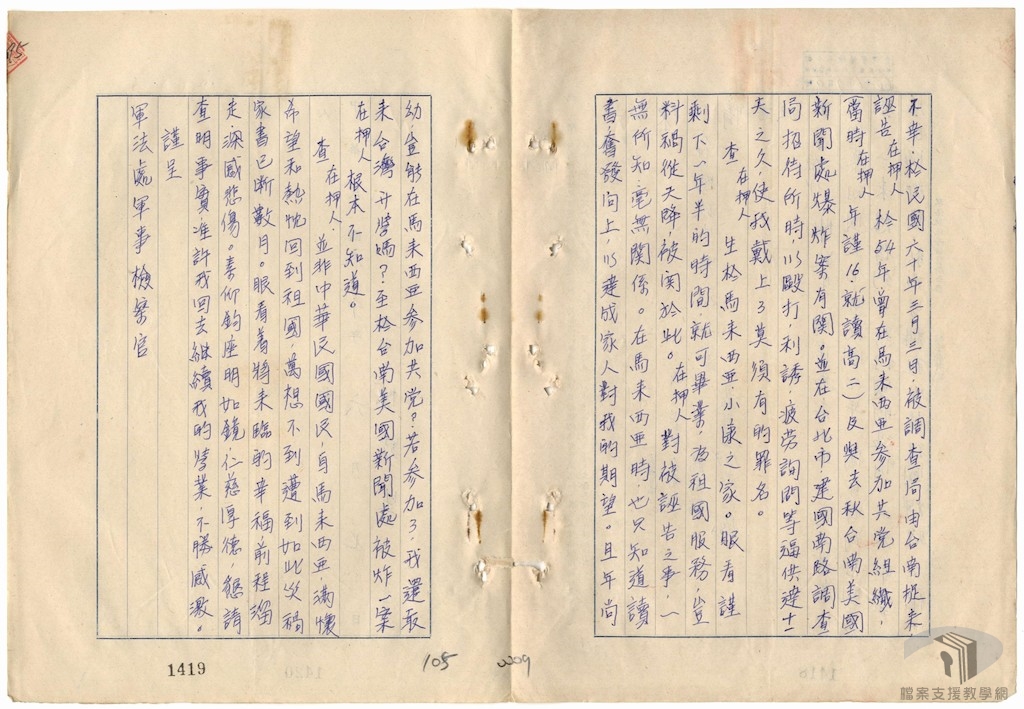 不幸，於民國六十年三月三日，被調查局由台南抓來
誣告在押人於54年曾在馬來西亞參加共党組織，
當時在押人年謹16.就讀高二）及與去秋台南美國
新聞處爆炸案有関。並在台北市建國南路調查
局招待所時，以毆打，利誘，疲勞詢問等逼供達十二
天之久，使我戴上了莫須有的罪名。
查在押人生於馬來西亞，小康之家。眼看謹
剩下一年半的時間，就可畢業，為祖國服務，豈
料禍從天降，被関於此。在押人對被誣告之事，一
無所知毫無関係。在馬來西亞時，也只知道讀
書奮發向上，以達成家人對我的期望。且年尚
幼豈能在馬來西亞參加共党？若參加了，我還敢
來台灣升學嗎？至於台南美國新聞處被炸一案
在押人根本不知道。
查在押人，並非中華民國國民，自馬來西亞，滿懷
希望和熱忱回到祖國，萬想不到遭到如此災禍
家書已斷數月。眼看着將來臨的幸福前程溜
走，深感悲傷。素仰鈞座明如鏡，仁慈厚德，懇請
查明事實准許我回去継續我的學業，不勝感激。
謹呈
軍法處軍事檢察官
1419
105
檔案支援教學網